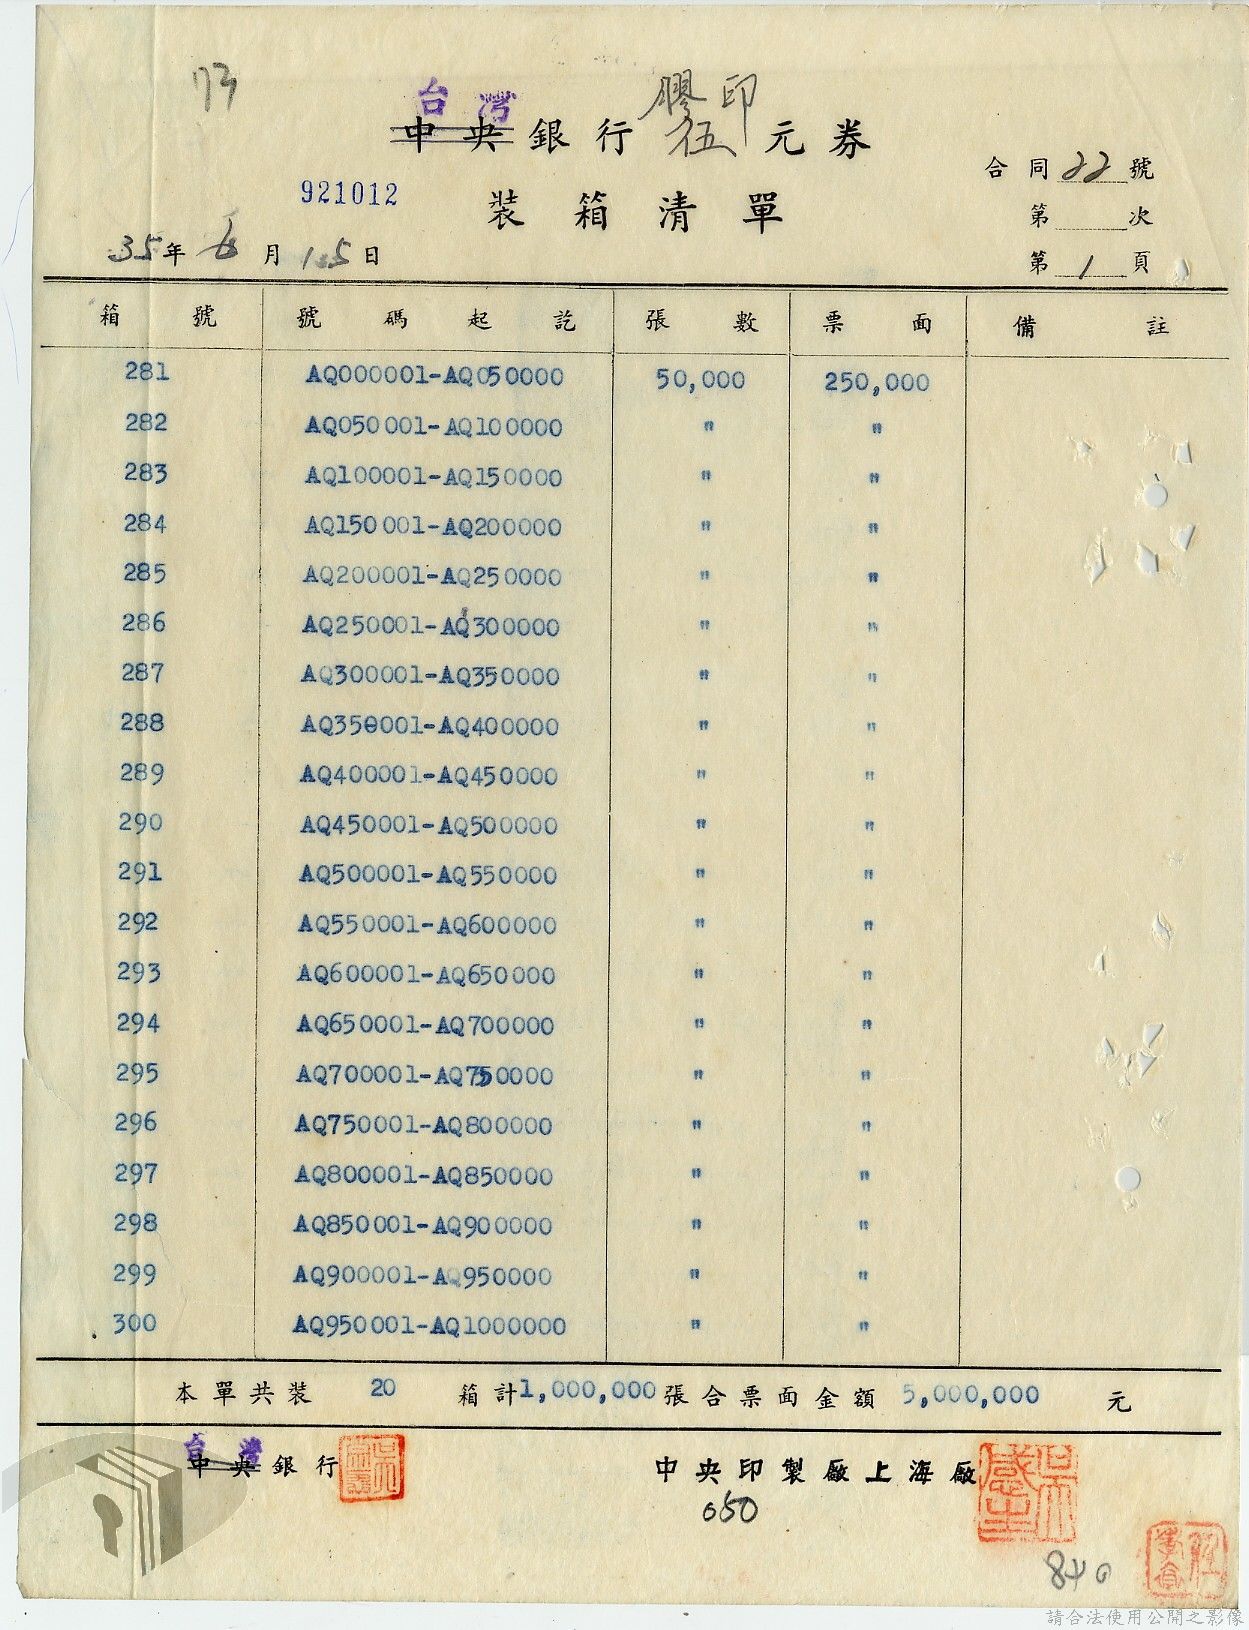 73
台灣 膠印
中央銀行 伍 元券
921012 裝箱清單
合同22號
第 次
第1頁
35年6月15日
箱號 號碼起訖 張數 票面 備註
281 AQ000001-AQ050000 50,000 250,000
282 AQ050001-AQ100000 " "
283 AQ100001-AQ150000 " "
284 AQ150001-AQ200000 " "
285 AQ200001-AQ250000 " "
286 AQ250001-AQ300000 " "
287 AQ300001-AQ350000 " "
288 AQ350001-AQ400000 " "
289 AQ400001-AQ450000 " "
290 AQ450001-AQ500000 " "
291 AQ500001-AQ550000 " "
292 AQ550001-AQ600000 " "
293 AQ600001-AQ650000 " "
294 AQ650001-AQ700000 " "
295 AQ700001-AQ750000 " "
296 AQ750001-AQ800000 " "
297 AQ800001-AQ850000 " "
298 AQ850001-AQ900000 " "
299 AQ900001-AQ950000 " "
300 AQ950001-AQ1000000 " "
本單共裝 20 箱計1,000,000張合票面金額 5,000,000 元
台灣
中央銀行 中央印製廠上海廠
050
840
請合法使用公開之影像